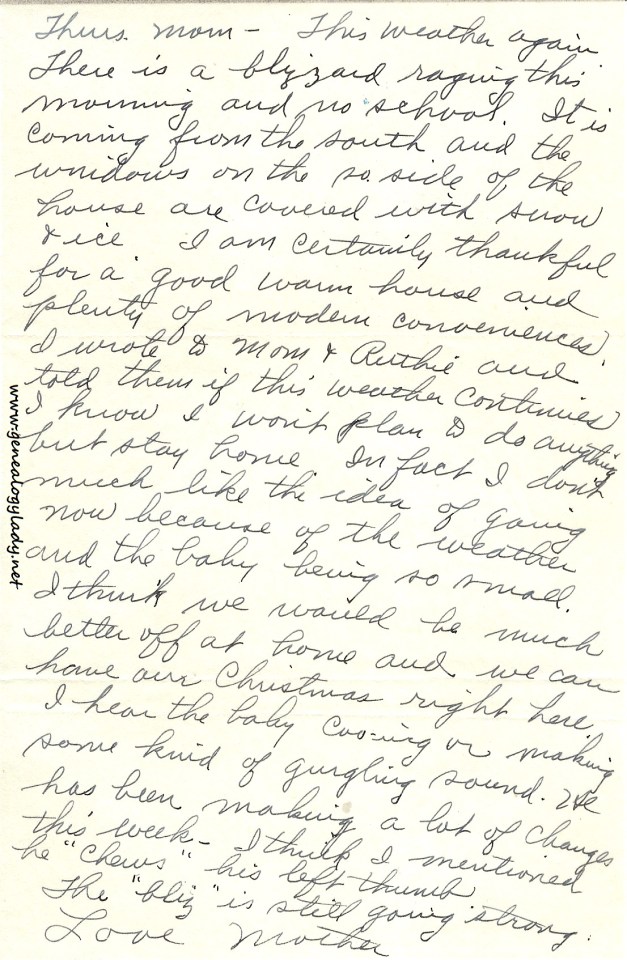 Thurs. Mom - This weather again
There is a blizzard raging this
morning and no school. It is
coming from the south and the
windows on the so. side of the
house are covered with snow
& ice I am certainly thankful
for a good warm house and
plenty of modern conveniences.
I wrote to Mom & Ruthie and
told them if this weather continues
I know I won't plan to do anything
but stay home In fact I don't
much like the idea of going
now because of the weather
and the baby being so small.
I think we would be much
better off at home and we can
have our Christmas right here.
I hear the baby cooing or making
some kind of gurgling sound. He
has been making a lot of changes
this week - I think I mentioned
he "chews" his left thumb
The "bliz" is still going strong.
Love Mother
www.genealogylady.net